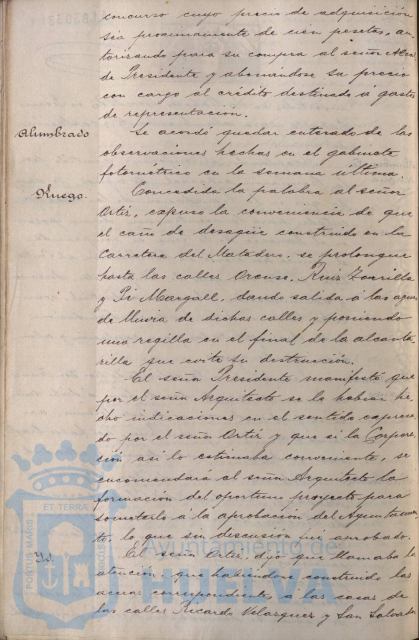 concurso cuyo precio de adquisición
sea proximamente de cien pesetas, au-
torizando para su compra al señor Alcal
de Presidente y abonándose su precio
con cargo al crédito destinado á gastos
de representación.
Alumbrado
Se acordó quedar enterado de las
observaciones hechas en el gabinete
fotométrico en la semana última.
Ruego.
Concedida la palabra al señor
Ortiz, expuso la conveniencia de que
el caño de desagüe construido en la
Carretera del Matadero, se prolongue
hasta las calles Orense, Ruiz Zorrilla
y Pi Margall, dando salida á las aguas
de lluvia de dichas calles y poniendo
una regilla en el final de la alcanta
rilla que evite su destrucción.
El señor Presidente manifestó que
por el señor Arquitecto se le habían he
cho indicaciones en el sentido expresa
do por el señor Ortiz y que si la Corpora
sión así lo estimaba conveniente, se
encomendará al señor Arquitecto la
formación del oportuno proyecto para
someterlo á la aprobación del Ayuntamien
to, lo que sin discusión fué aprobado.
Id.
El señor Ortiz dijo que llamaba la
atención que habiéndose construido las
aceras correspondientes á las casas de
las calles Ricardo Velazquez y San Salvador
PORTUS MARIS
ET TERRÆ
Ayuntamiento de
HUELVA